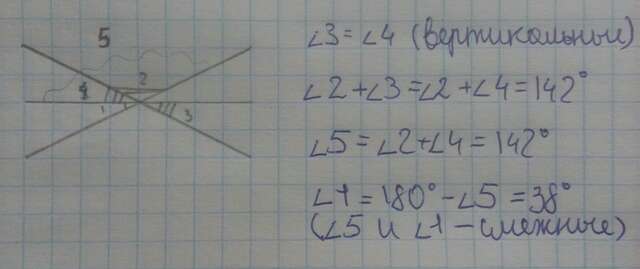 5
2
4
1
3
∠3 = ∠4 (вертикальные)
∠2 + ∠3 = ∠2 + ∠4 = 142°
∠5 = ∠2 + ∠4 = 142°
∠1 = 180° - ∠5 = 38°
(∠5 и ∠1 - смежные)